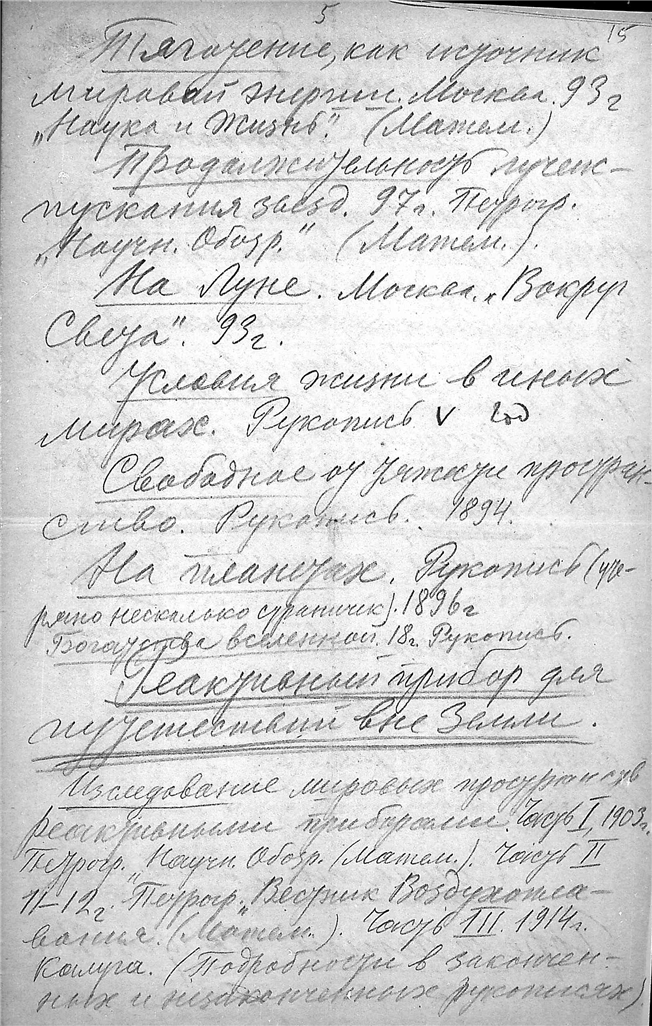 5
15
Тяготение, как источник
мировой энергии. Москва. 93 г
„Наука и Жизнь". (Матем.)
Продолжительность лучеис-
пускания звезд. 97 г. Петрогр.
„Научн. Обозр." (Матем.).
На Луне. Москва. „Вокруг
Света". 93 г.
Условия жизни в иных
мирах. Рукопись V год
Свободное от тяжести простран-
ство. Рукопись. 1894.
На планетах. Рукопись (уте-
ряно несколько страничек). 1896 г
Богатства вселенной. 18 г. Рукопись.
Реактивный прибор для
путешествий вне Земли.
Изследование мировых пространств
реактивными приборами. Часть I, 1903 г.
Петрогр. „Научн. Обозр. (Матем.). Часть II
11–12 г. Петрогр. „Вестник Воздухопла-
вания. (Матем.). Часть III. 1914 г.
Калуга. (Подробности в закончен-
ных и незаконченных рукописях)